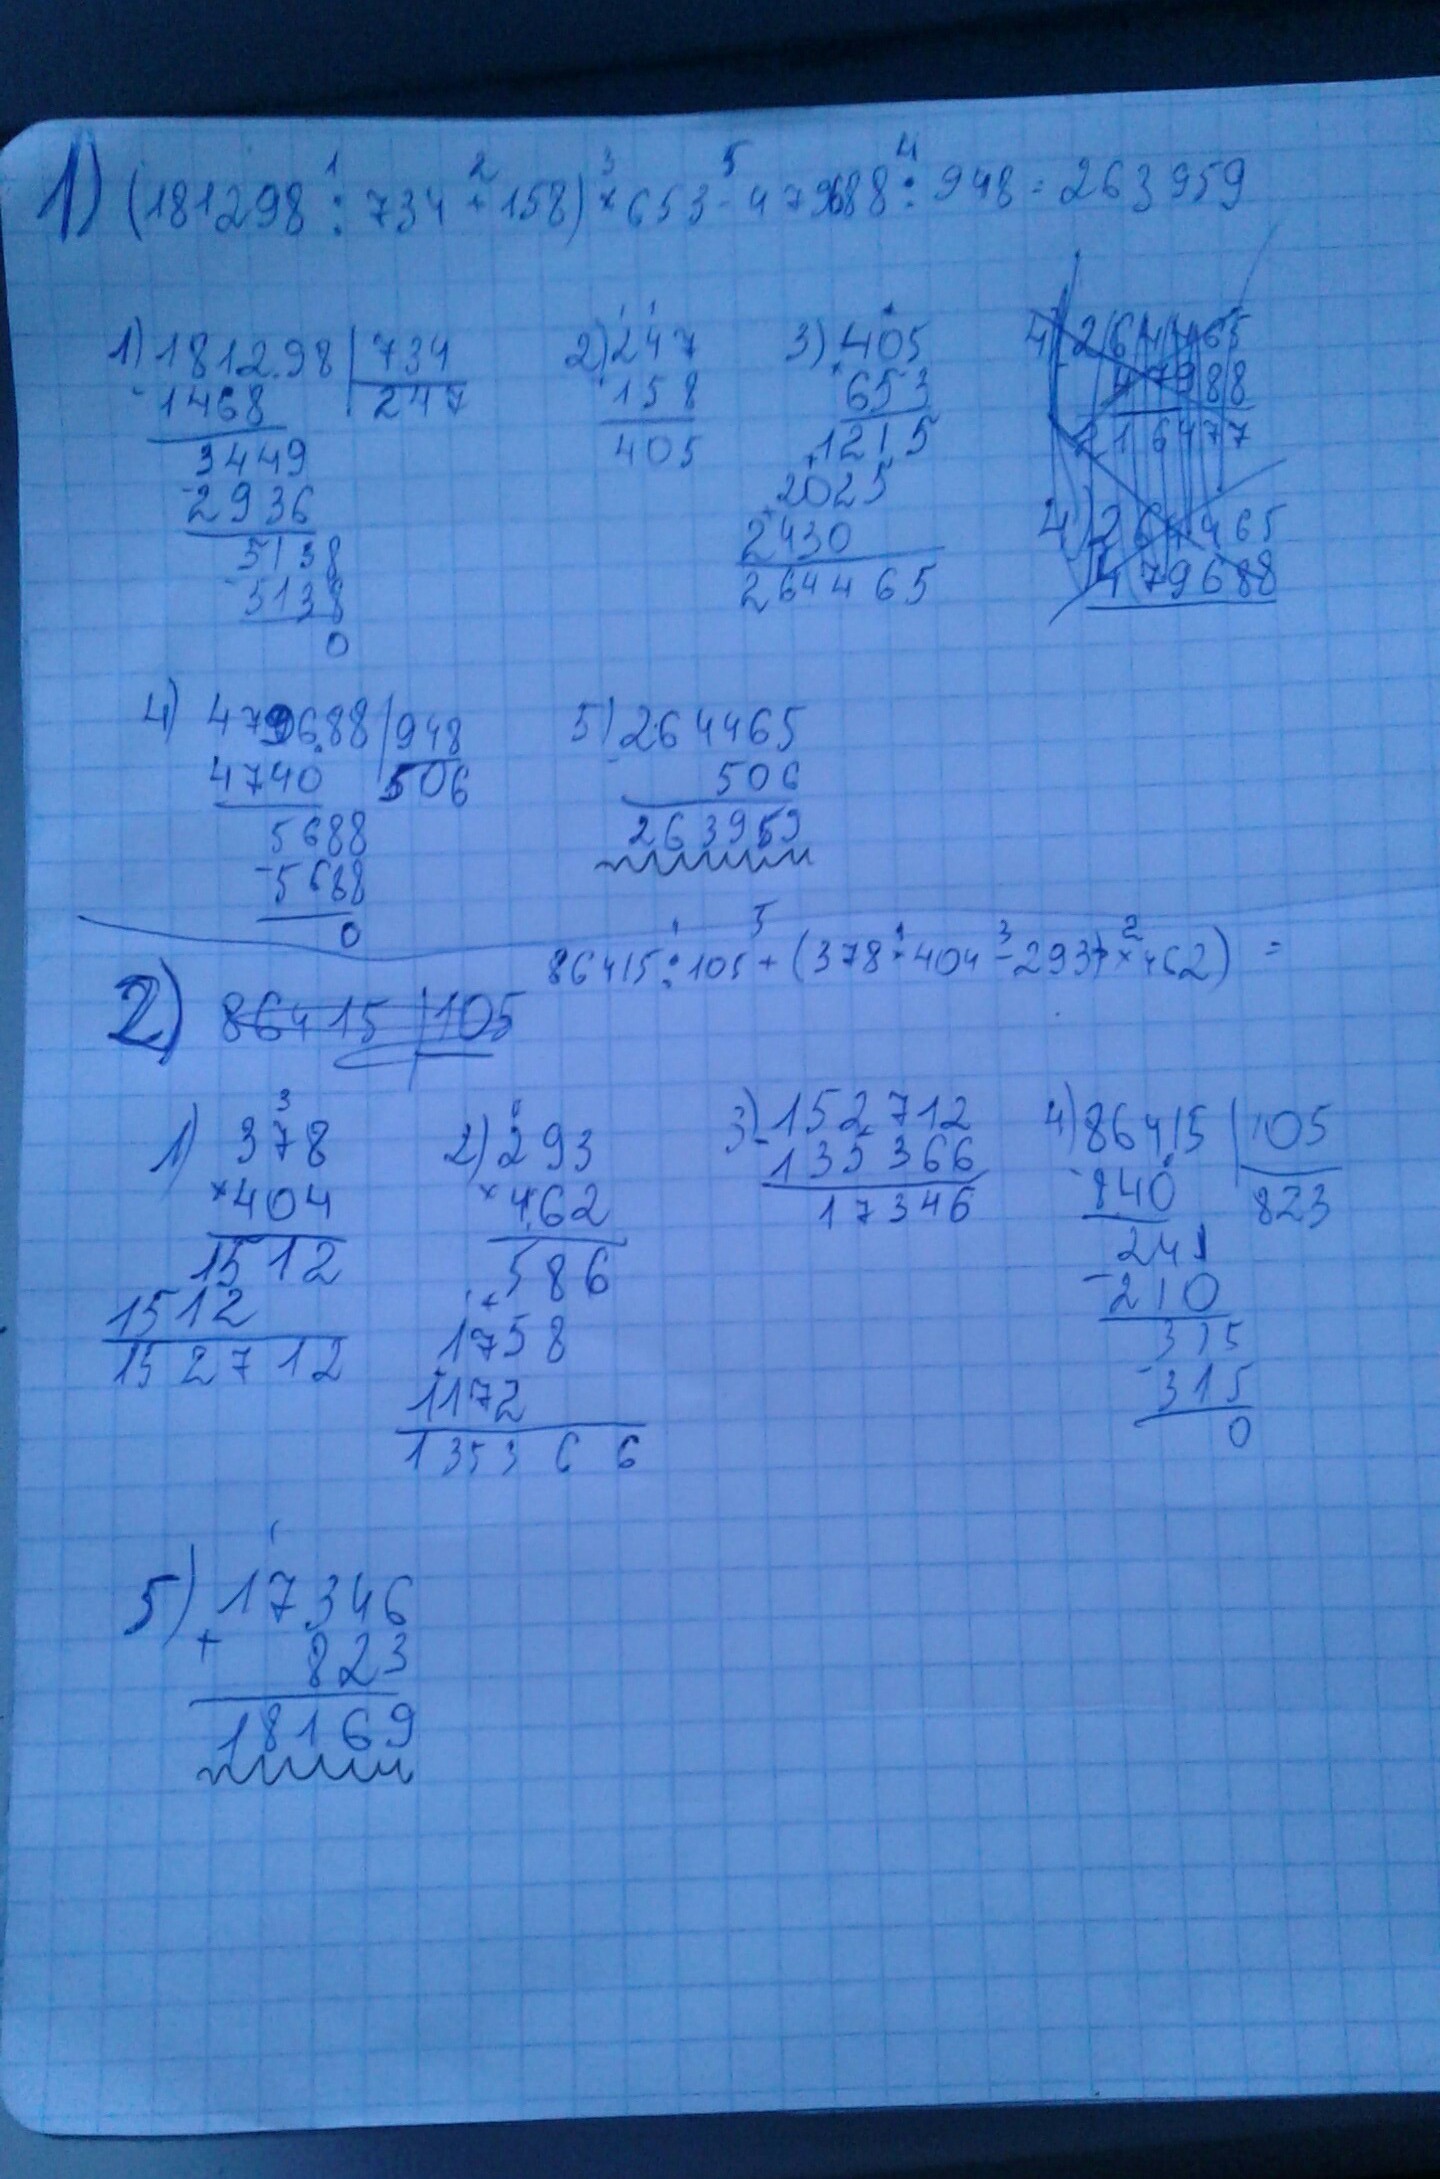 1) (181298 : 734 + 158) × 653 - 479688 : 948 = 263959
1) 181298 | 734
- 1468 247
3449
- 2936
5138
- 5138
0
2) 247
+ 158
405
3) 405
× 653
1215
+ 2025
+ 2430
264465
4) 264465
47988
216477
4) 264465
479688
4) 479688 | 948
4740 506
5688
- 5688
0
5) 264465
- 506
263959
86415 : 105 + (378 · 404 - 293 × 462) =
2) 86415 | 105
1) 378
× 404
1512
1512
152712
2) 293
× 462
586
+ 1758
+ 1172
135366
3) 152712
- 135366
17346
4) 86415 | 105
- 840 823
241
- 210
315
- 315
0
5) 17346
+ 823
18169